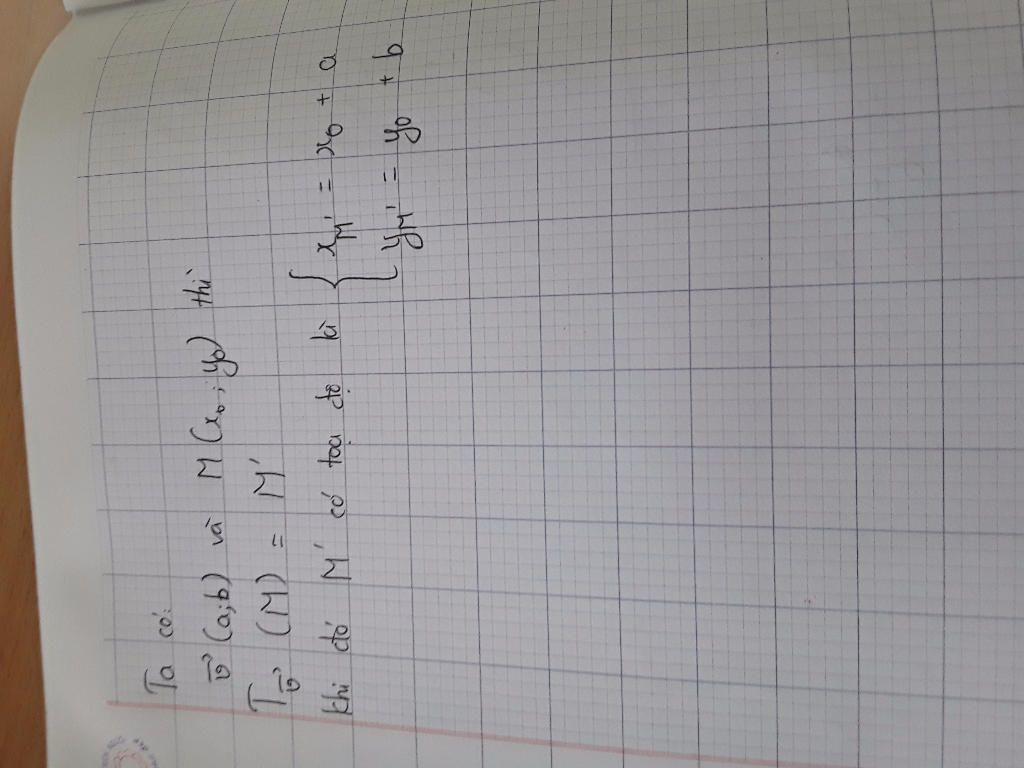 Ta có:
v⃗ (a;b) và M (x₀; y₀) thì
T_v⃗ (M) = M'
khi đó M' có tọa độ là { x_M' = x₀ + a
y_M' = y₀ + b